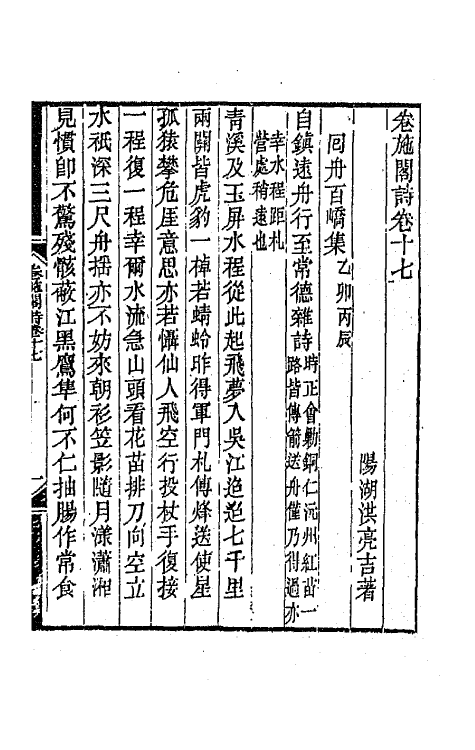 卷施閣詩卷十七
陽湖洪亮吉著
囘舟百嶠集乙卯丙辰
自鎮遠舟行至常德雜詩時正會勦銅仁沅州紅苗一路皆傳箭送舟僅乃得過亦
幸水程距札營處稍遠也
青溪及玉屏水程從此起飛夢入吳江迢迢七千里
兩關皆虎豹一棹若蜻蛉昨得軍門札傳烽送使星
孤猿攀危厓意思亦若懾仙人飛空行投杖手復接
一程復一程幸爾水流急山頭看花苗排刀向空立
水祇深三尺舟揺亦不妨來朝衫笠影隨月漾瀟湘
見慣卽不驚殘骸蔽江黑鷹隼何不仁抽腸作常食
卷施閣詩卷十七
一